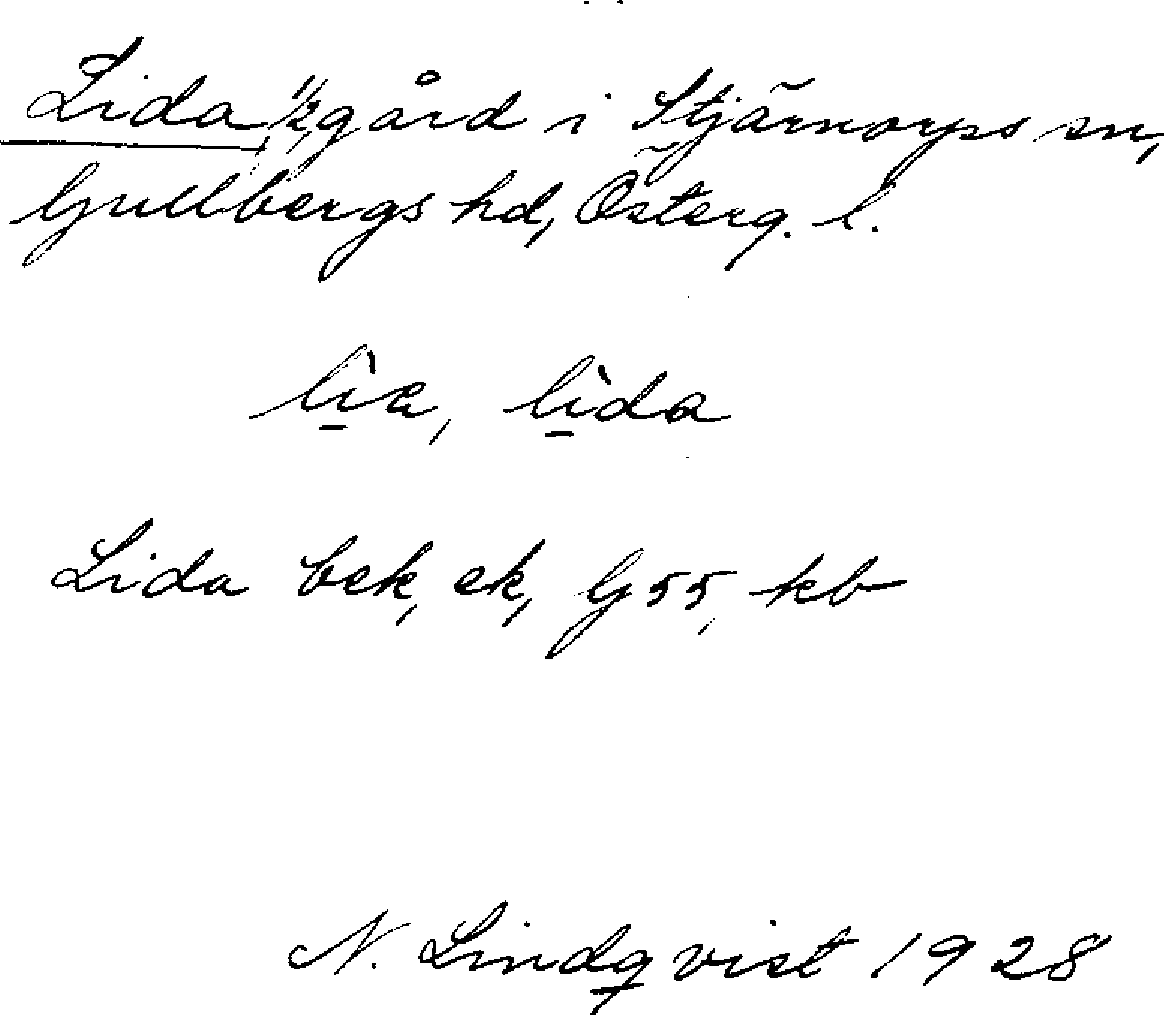 Lida ½ gård i Stjärnorps sn,
Gullbergs hd, Österg. l.
lìa, lìda
Lida bek, ek, G 55, kb
N. Lindqvist 1928